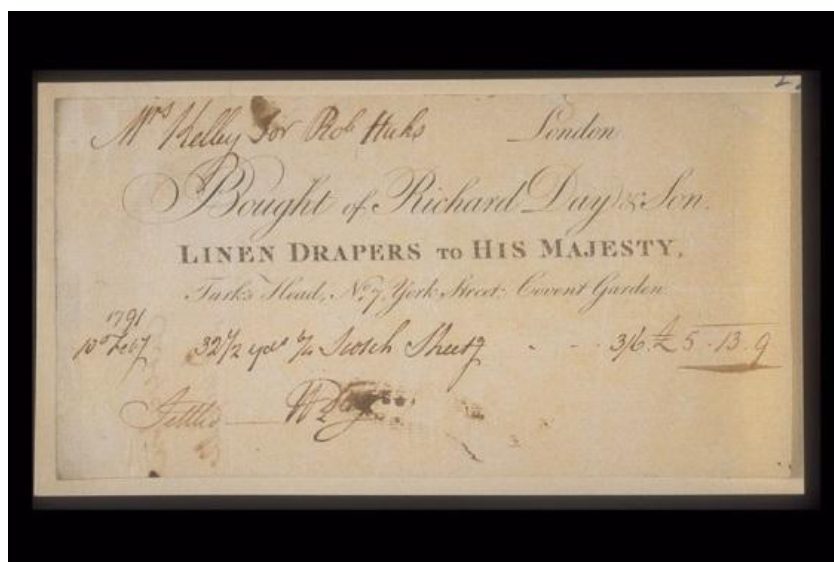 Mrs Kelley for Rob Hicks London
Bought of Richard Day & Son.
LINEN DRAPERS TO HIS MAJESTY,
Turk's Head, No. 7, York Street, Covent Garden
1791
10th Feby 32 1/2 yds Scotch Sheetg - - - 3/6 £ 5 - 13 - 9
Settled